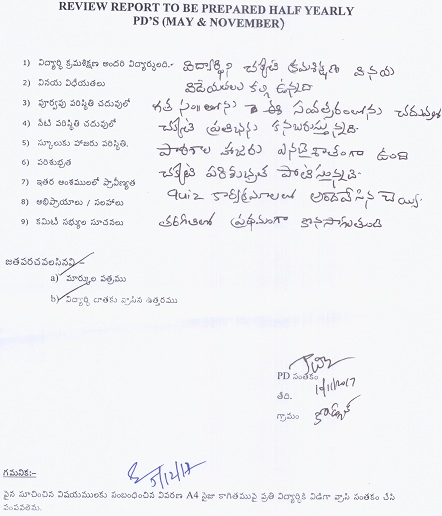 REVIEW REPORT TO BE PREPARED HALF YEARLY
PD'S (MAY & NOVEMBER)
1) విద్యార్థి క్రమశిక్షణ అందరి విద్యార్థులది.- విద్యార్థిని చక్కటి క్రమశిక్షణ వినయ
2) వినయ విధేయతలు విధేయతలు కల్గి ఉన్నది
3) పూర్వపు పరిస్థితి చదువులో గత సం॥లోను ఈ సంవత్సరంలోను చదువులో
4) నేటి పరిస్థితి చదువులో చక్కటి ప్రతిభను కనబరుస్తున్నది.
5) స్కూలుకు హాజరు పరిస్థితి. పాఠశాల హాజరు ఎనభైశాతంగా ఉంది
6) పరిశుభ్రత చక్కటి పరిశుభ్రత పాటిస్తున్నది.
7) ఇతర అంశములలో ప్రావీణ్యత quiz కార్యక్రమాలలో అందవేసిన చెయ్యి.
8) అభిప్రాయాలు / సలహాలు
9) కమిటీ సభ్యుల సూచనలు తరగతిలో ప్రథమంగా కొనసాగుతుంది
జతపరచవలసినవి:-
a) మార్కుల పత్రము
b) విద్యార్థి దాతకు వ్రాసిన ఉత్తరము
PD సంతకం
తేది. 10/11/2017
గ్రామం
5/12/17
గమనిక:-
పైన సూచించిన విషయములకు సంబంధించిన వివరణ A4 సైజు కాగితముపై ప్రతి విద్యార్థికి విడిగా వ్రాసి సంతకం చేసి
పంపవలెను.